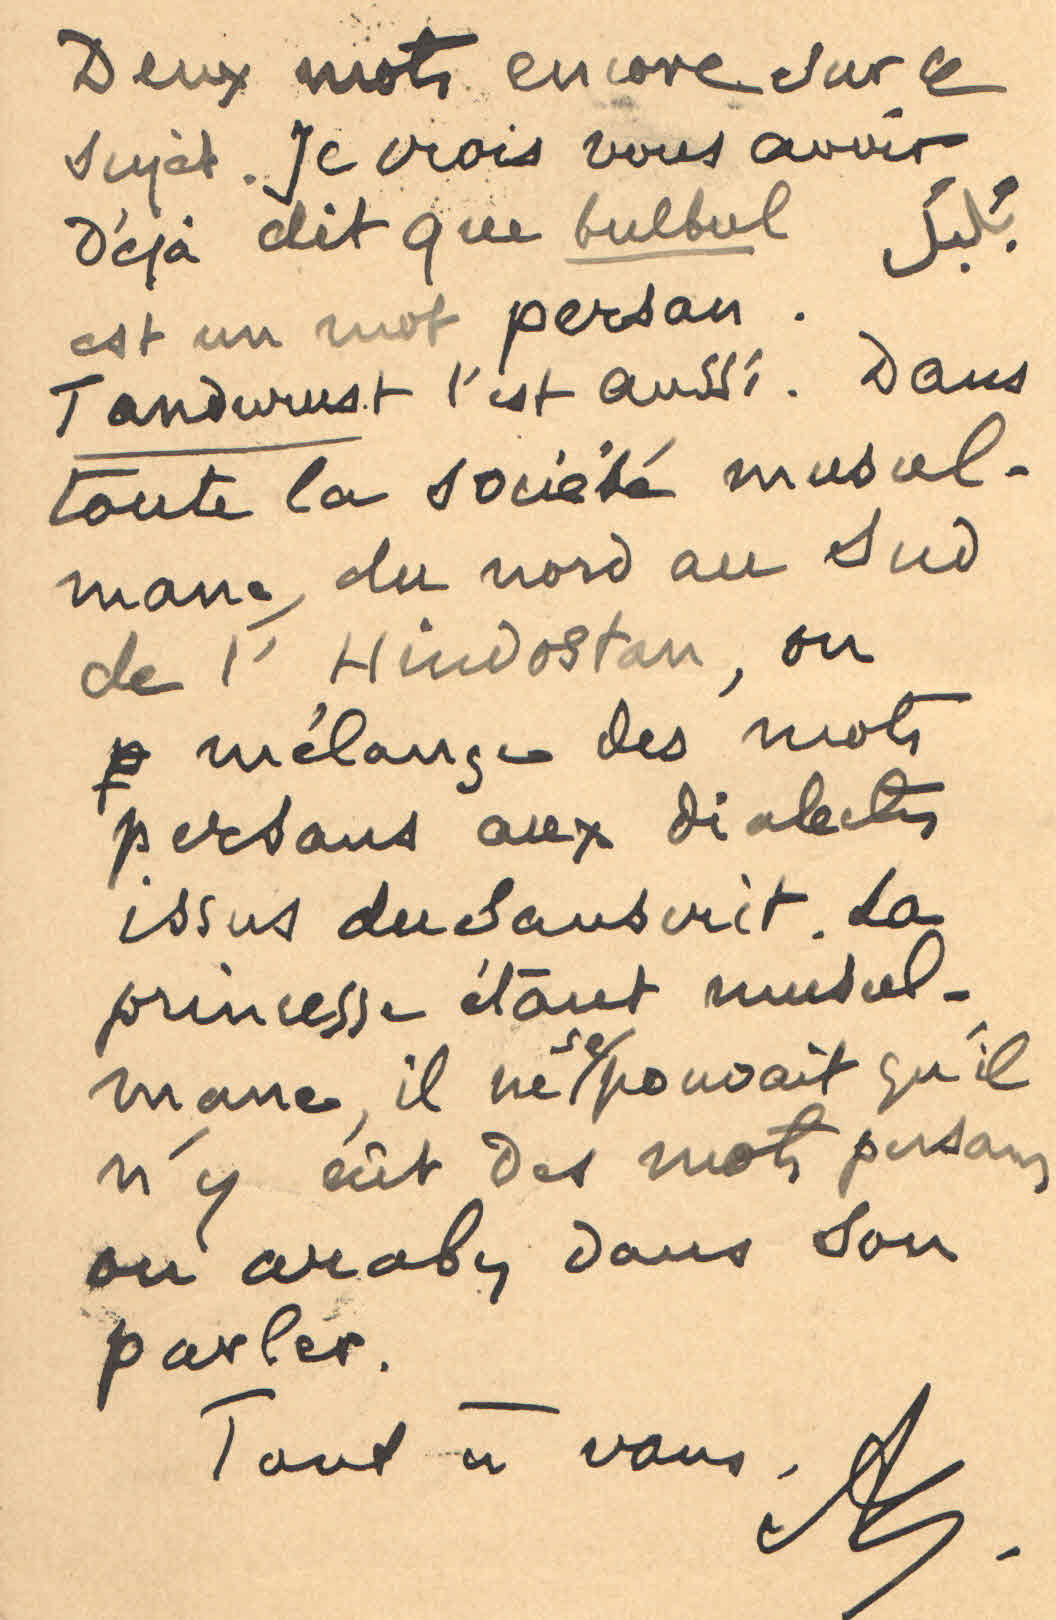 Deux mots encore sur ce
sujet. Je crois vous avoir
déjà dit que bulbul بُلبُل
est un mot persan.
Tandurust l'est aussi. Dans
toute la société musul-
mane, du nord au Sud
de l'Hindostan, on
mélange des mots
persans aux dialectes
issus du Sanscrit. La
princesse étant musul-
mane, il ne se pouvait qu'il
n'y eût des mots persans
ou arabes dans son
parler.
Tout à vous.